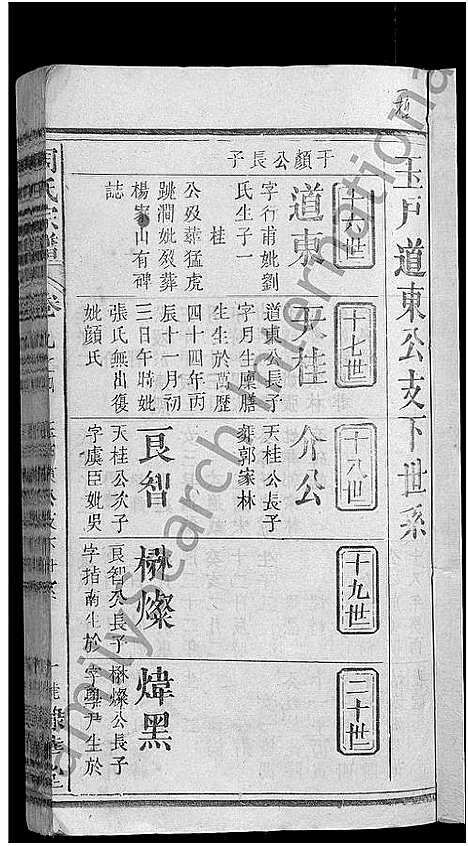 玉戶道東公支下世系
十六世
于顏公長子
道東
字行甫妣劉
氏生子一
桂
公歿葬猛虎
跳澗妣歿葬
楊家山有碑
誌
十七世
天桂
道東公長子
字月生廩膳
生生於萬歷
四十四年丙
辰十一月初
三日午時妣
張氏無出復
妣顏氏
十八世
介公
天桂公長子
葬郭家林
良智
天桂公次子
字虞臣妣吳
十九世
楙燦
良智公長子
字指南生於
二十世
煒黑
楙燦公長子
字興尹生於
周氏宗譜
卷九
FamilySearch International